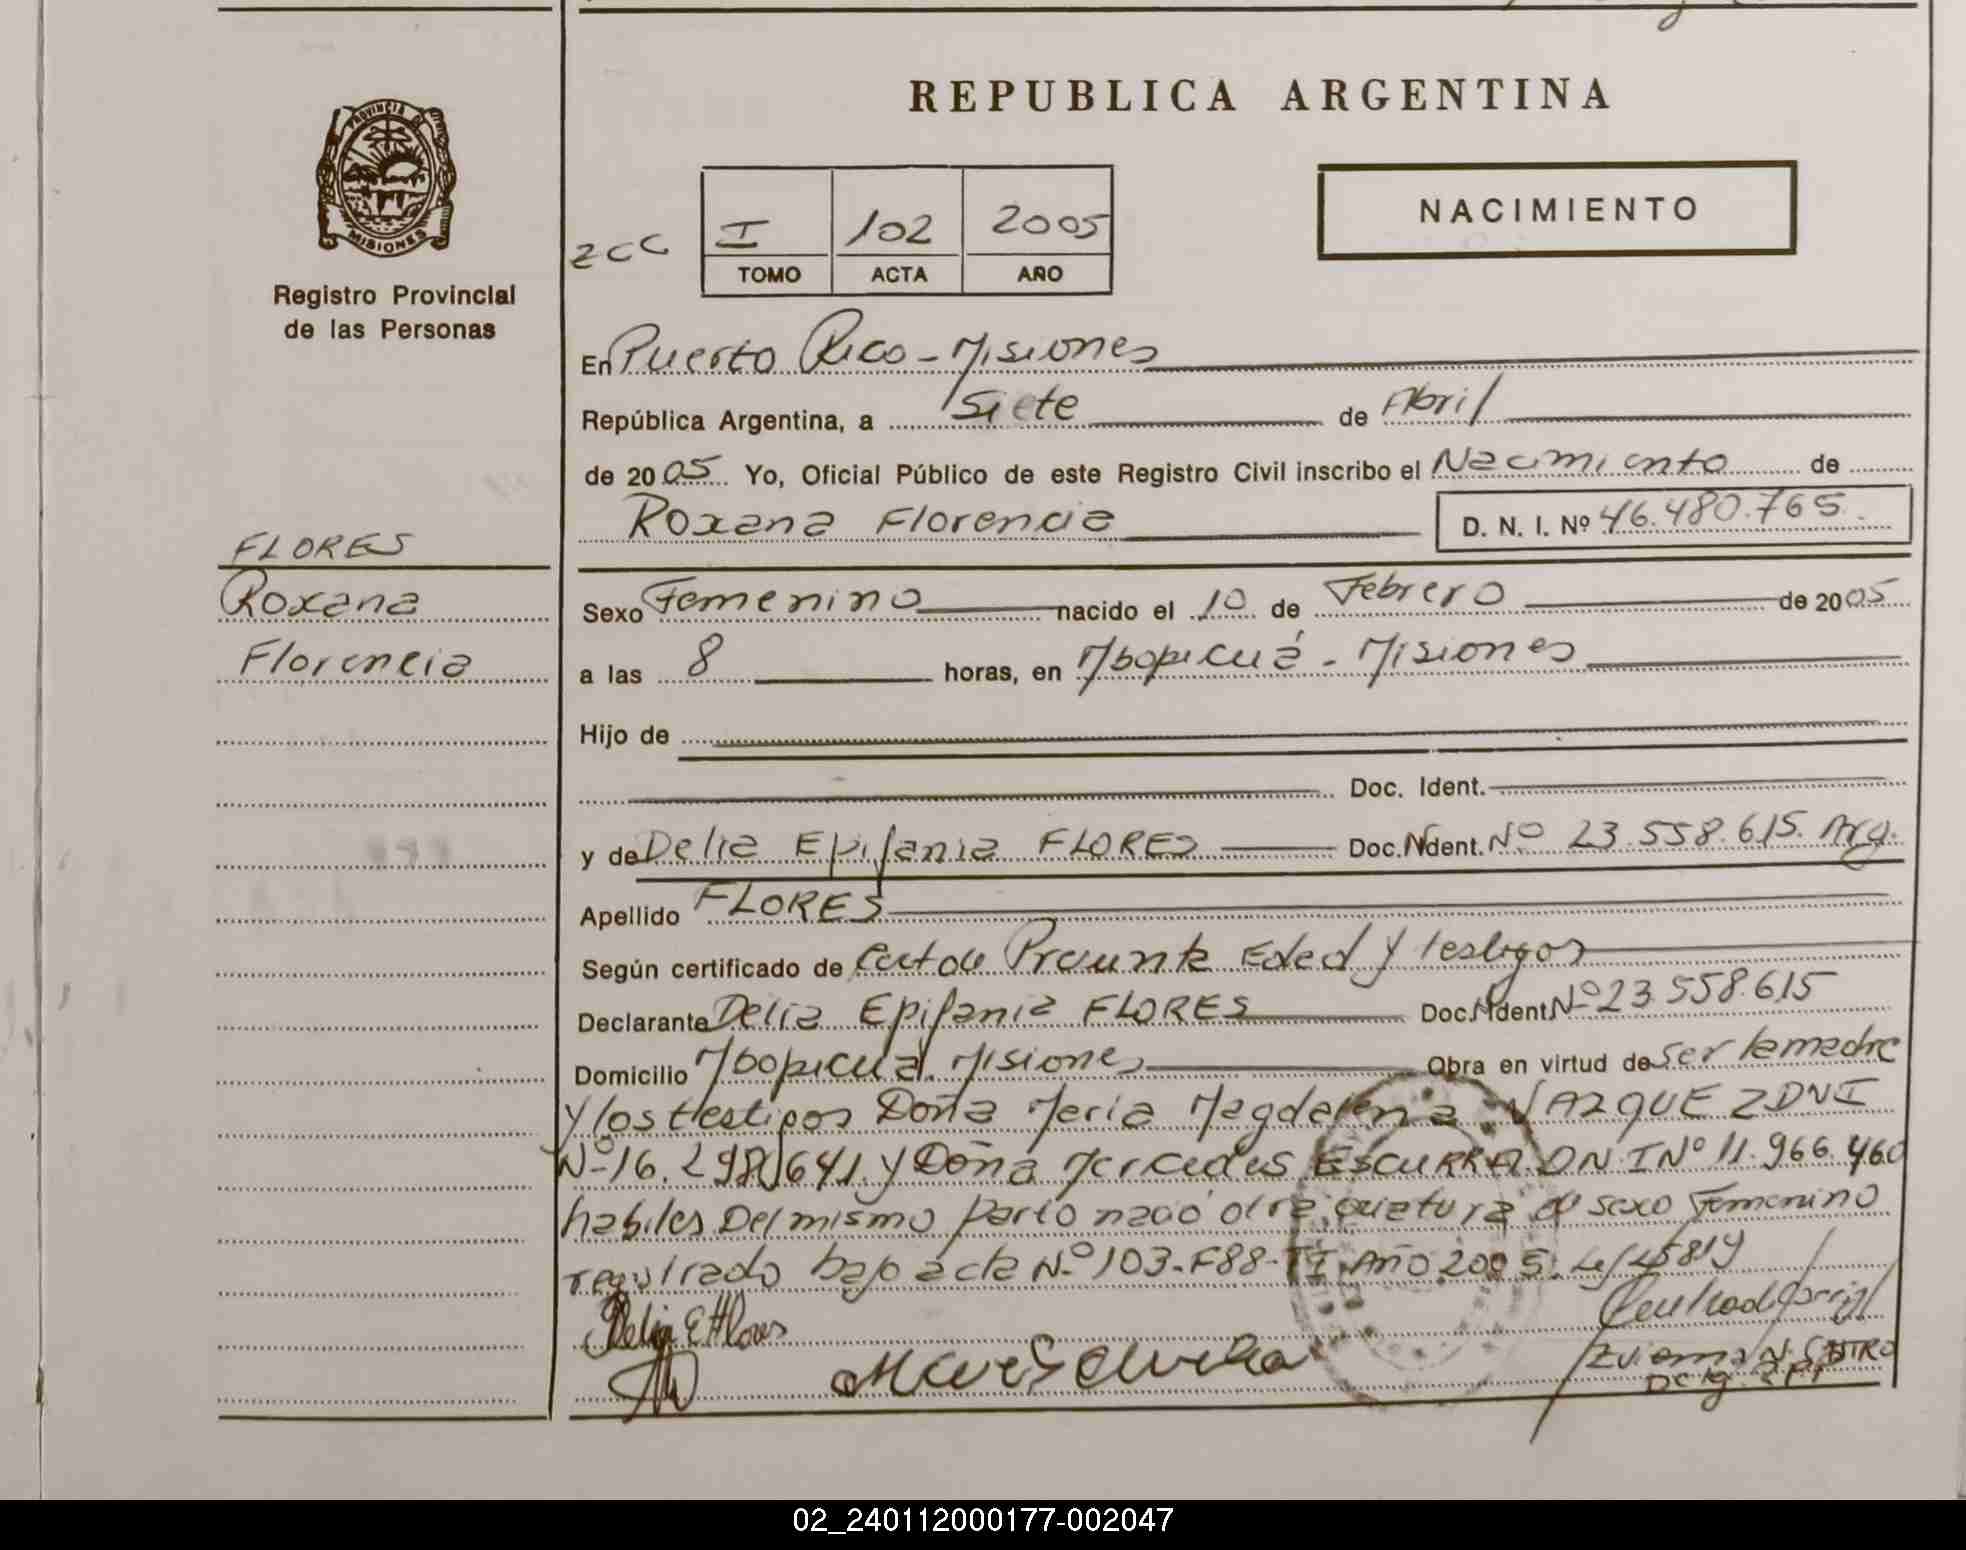 REPUBLICA ARGENTINA
PROVINCIA DE
MISIONES
Registro Provincial
de las Personas
NACIMIENTO
I 102 2005
TOMO ACTA AÑO
En Puerto Rico - Misiones
República Argentina, a Siete de Abril
de 2005 Yo, Oficial Público de este Registro Civil inscribo el Nacimiento de
Roxana Florencia D. N. I. Nº 46.480.765.
FLORES
Roxana
Florencia
Sexo Femenino nacido el 10 de Febrero de 2005
a las 8 horas, en Mbopicuá - Misiones
Hijo de
Doc. Ident.
y de Delia Epifania FLORES Doc. Ident. Nº 23.558.615. Arg.
Apellido FLORES
Según certificado de Edad y testigos
Declarante Delia Epifania FLORES Doc. Ident. Nº 23.558.615
Domicilio Mbopicuá. Misiones Obra en virtud de ser la madre
y los testigos Doña María Magdalena VAZQUEZ DNI
Nº 16.298.641. y Doña Mercedes ESCURRA DNI Nº 11.966.460
habiles Del mismo parto nació otra criatura de sexo Femenino
registrado bajo acta Nº 103-F88-TI Año 2005.
Delia E Flores
02_240112000177-002047